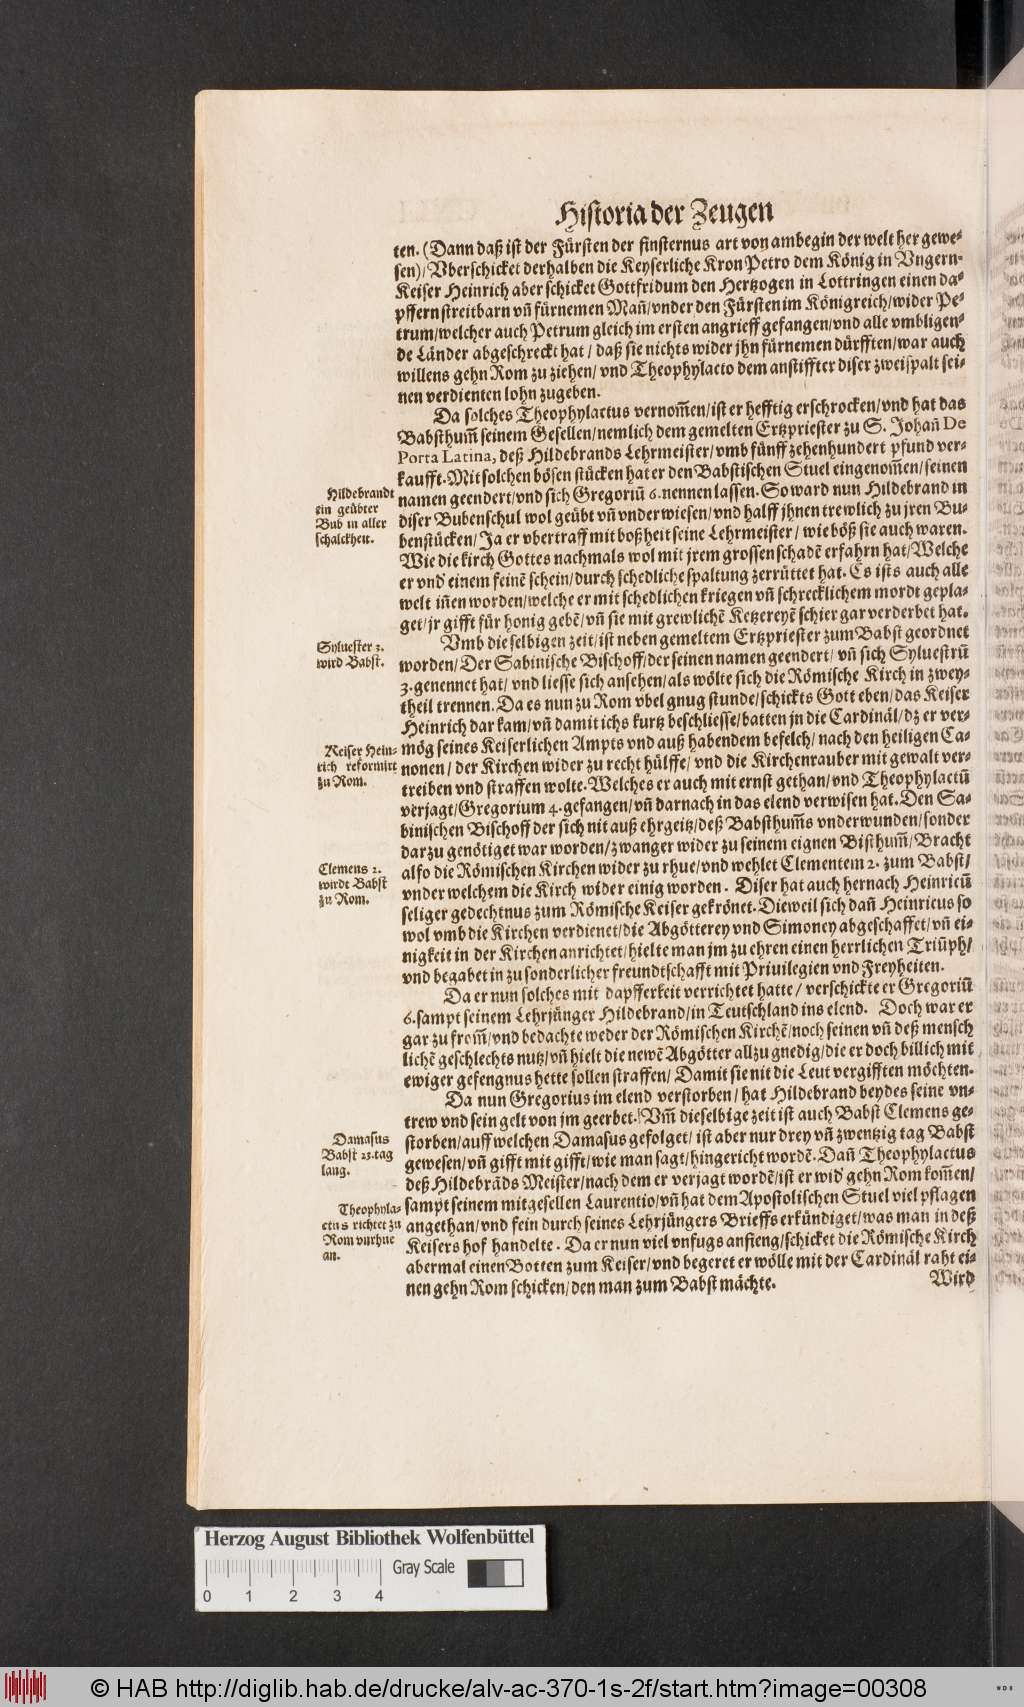 Historia der Zeugen
ten. (Dann daß ist der Fürsten der finsternus art von ambegin der welt her gewe-
sen)/ Vberschicket derhalben die Keyserliche Kron Petro dem König in Vngern.
Keiser Heinrich aber schicket Gottfridum den Hertzogen in Lottringen einen da-
pffern streitbarn vñ fürnemen Mañ/ vnder den Fürsten im Königreich/ wider Pe-
trum/ welcher auch Petrum gleich im ersten angrieff gefangen/ vnd alle vmbligen-
de Länder abgeschreckt hat / daß sie nichts wider jhn fürnemen dürfften/ war auch
willens gehn Rom zu ziehen/ vnd Theophylacto dem anstiffter diser zweispalt sei-
nen verdienten lohn zugeben.
Da solches Theophylactus vernom̃en/ ist er hefftig erschrocken/ vnd hat das
Babsthum̃ seinem Gesellen/ nemlich dem gemelten Ertzpriester zu S. Johañ De
Porta Latina, deß Hildebrands Lehrmeister/ vmb fünff zehenhundert pfund ver-
kaufft. Mit solchen bösen stücken hat er den Babstischen Stuel eingenom̃en/ seinen
Hildebrandt
ein geübter
Bub in aller
schalckheit.
namen geendert/ vnd sich Gregoriũ 6. nennen lassen. So ward nun Hildebrand in
diser Bubenschul wol geübt vñ vnderwiesen/ vnd halff jhnen trewlich zu jren Bu-
benstücken/ Ja er vbertraff mit boßheit seine Lehrmeister / wie böß sie auch waren.
Wie die kirch Gottes nachmals wol mit jrem grossen schadẽ erfahrn hat/ Welche
er vnd einem feinẽ schein/ durch schedliche spaltung zerrüttet hat. Es ists auch alle
welt iñen worden/ welche er mit schedlichen kriegen vñ schrecklichem mordt gepla-
get/ jr gifft für honig gebẽ/ vñ sie mit grewlichẽ Ketzereyẽ schier gar verderbet hat.
Syluester 3.
wird Babst.
Vmb die selbigen zeit/ ist neben gemeltem Ertzpriester zum Babst geordnet
worden/ Der Sabinische Bischoff/ der seinen namen geendert/ vñ sich Syluestrũ
3. genennet hat/ vnd liesse sich ansehen/ als wölte sich die Römische Kirch in zwey-
theil trennen. Da es nun zu Rom vbel gnug stunde/ schickts Gott eben/ das Keiser
Heinrich dar kam/ vñ damit ichs kurtz beschliesse/ batten jn die Cardinäl/ dz er ver-
Keiser Hein-
rich reformirt
zu Rom.
mög seines Keiserlichen Ampts vnd auß habendem befelch/ nach den heiligen Ca-
nonen / der Kirchen wider zu recht hülffe/ vnd die Kirchenrauber mit gewalt ver-
treiben vnd straffen wolte. Welches er auch mit ernst gethan/ vnd Theophylactũ
verjagt/ Gregorium 4. gefangen/ vñ darnach in das elend verwisen hat. Den Sa-
binischen Bischoff der sich nit auß ehrgeitz/ deß Babsthum̃s vnderwunden/ sonder
darzu genötiget war worden/ zwanger wider zu seinem eignen Bisthum̃/ Bracht
Clemens 2.
wirdt Babst
zu Rom.
also die Römischen Kirchen wider zu rhue/ vnd wehlet Clementem 2. zum Babst/
vnder welchem die Kirch wider einig worden. Diser hat auch hernach Heinricũ
seliger gedechtnus zum Römische Keiser gekrönet. Dieweil sich dañ Heinricus so
wol vmb die Kirchen verdienet/ die Abgötterey vnd Simoney abgeschaffet/ vñ ei-
nigkeit in der Kirchen anrichtet/ hielte man jm zu ehren einen herrlichen Triũph/
vnd begabet in zu sonderlicher freundtschafft mit Priuilegien vnd Freyheiten.
Da er nun solches mit dapfferkeit verrichtet hatte / verschickte er Gregoriũ
6. sampt seinem Lehrjünger Hildebrand/ in Teutschland ins elend. Doch war er
gar zu from̃/ vnd bedachte weder der Römischen Kirchẽ/ noch seinen vñ deß mensch
lichẽ geschlechts nutz/ vñ hielt die newẽ Abgötter allzu gnedig/ die er doch billich mit
ewiger gefengnus hette sollen straffen/ Damit sie nit die Leut vergifften möchten.
Da nun Gregorius im elend verstorben/ hat Hildebrand beydes seine vn-
trew vnd sein gelt von jm geerbet. Vm̃ dieselbige zeit ist auch Babst Clemens ge-
Damasus
Babst 23. tag
lang.
storben/ auff welchen Damasus gefolget/ ist aber nur drey vñ zwentzig tag Babst
gewesen/ vñ gifft mit gifft/ wie man sagt/ hingericht wordẽ. Dañ Theophylactus
deß Hildebrãds Meister/ nach dem er verjagt wordẽ/ ist er wid gehn Rom kom̃en/
Theophyla-
ctus richtet zu
Rom vnrhue
an.
sampt seinem mitgesellen Laurentio/ vñ hat dem Apostolischen Stuel viel pflagen
angethan/ vnd fein durch seines Lehrjüngers Brieffs erkündiget/ was man in deß
Keisers hof handelte. Da er nun viel vnfugs anfieng/ schicket die Römische Kirch
abermal einen Botten zum Keiser/ vnd begeret er wölle mit der Cardinäl raht ei-
nen gehn Rom schicken/ den man zum Babst mächte.
Wird
Herzog August Bibliothek Wolfenbüttel
Gray Scale
0 1 2 3 4
© HAB http://diglib.hab.de/drucke/alv-ac-370-1s-2f/start.htm?image=00308